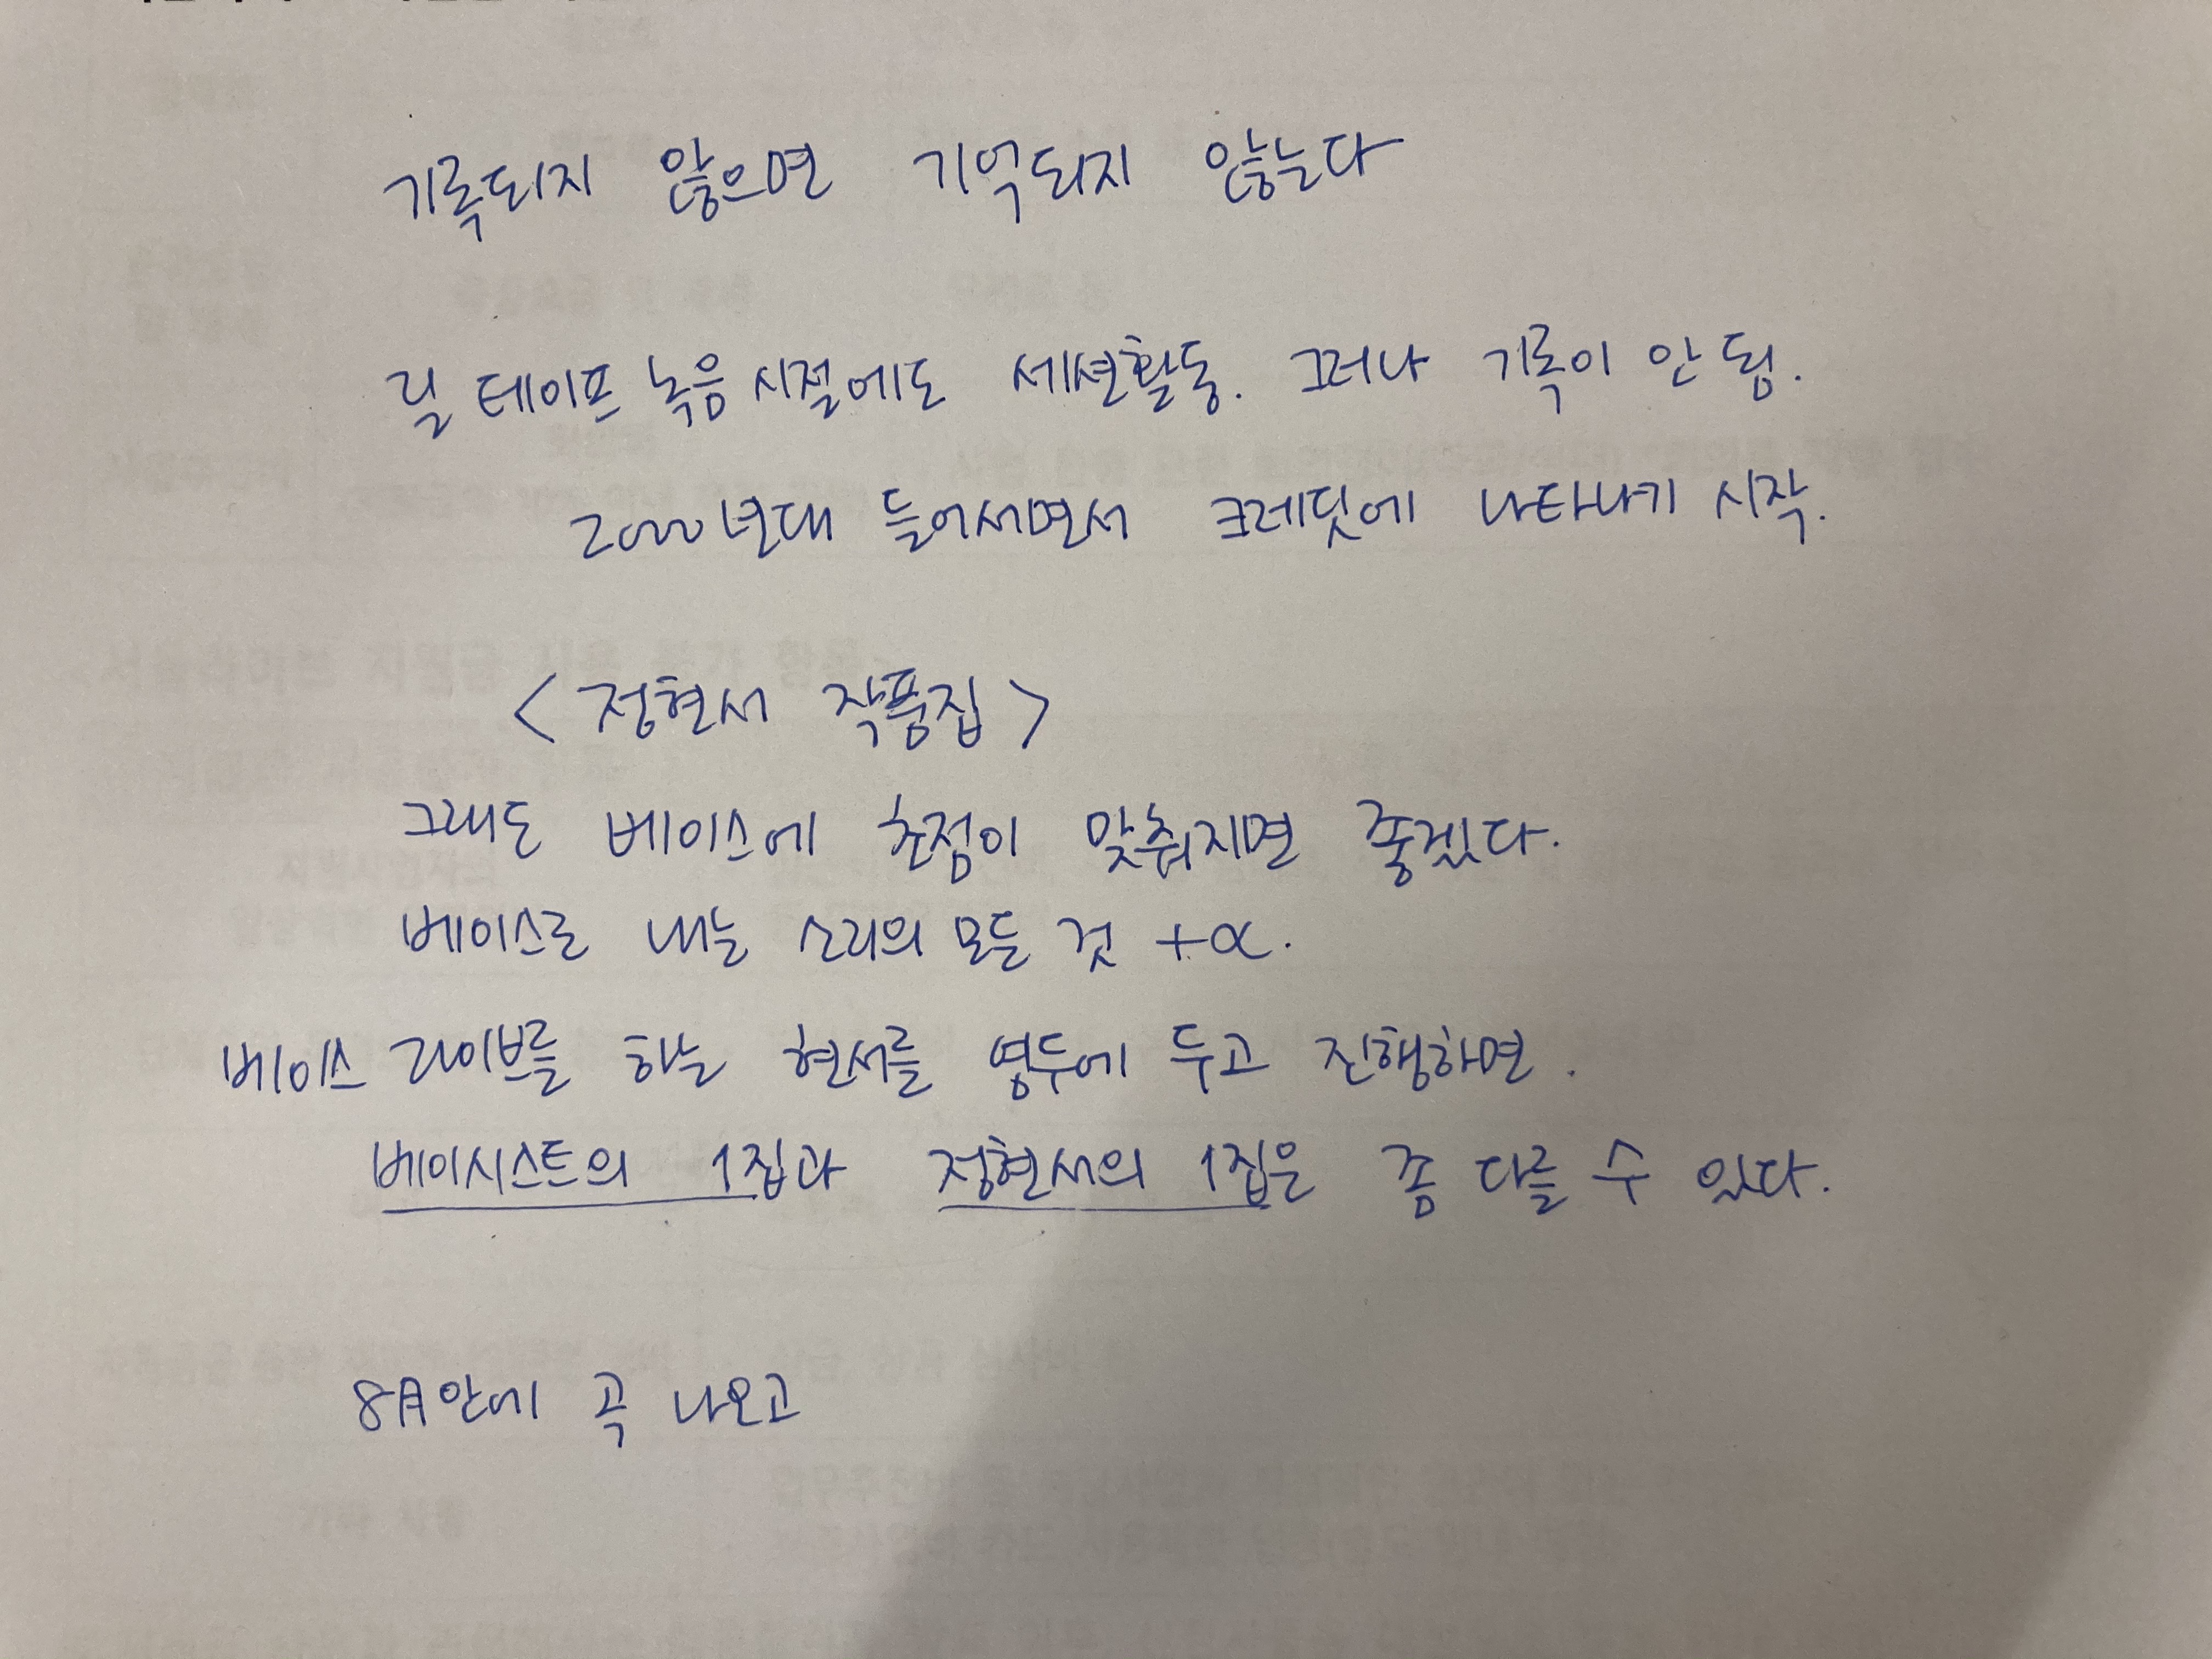 기록되지 않으면 기억되지 않는다
릴 테이프 녹음 시절에도 세션활동. 그러나 기록이 안 됨.
2000년대 들어서면서 크레딧에 나타나기 시작.
<정현서 작품집>
그래도 베이스에 초점이 맞춰지면 좋겠다.
베이스로 내는 소리의 모든 것 +α.
베이스 라이브를 하는 현서를 염두에 두고 진행하면.
베이시스트의 1집과 정현서의 1집은 좀 다를 수 있다.
8月안에 곡 나오고